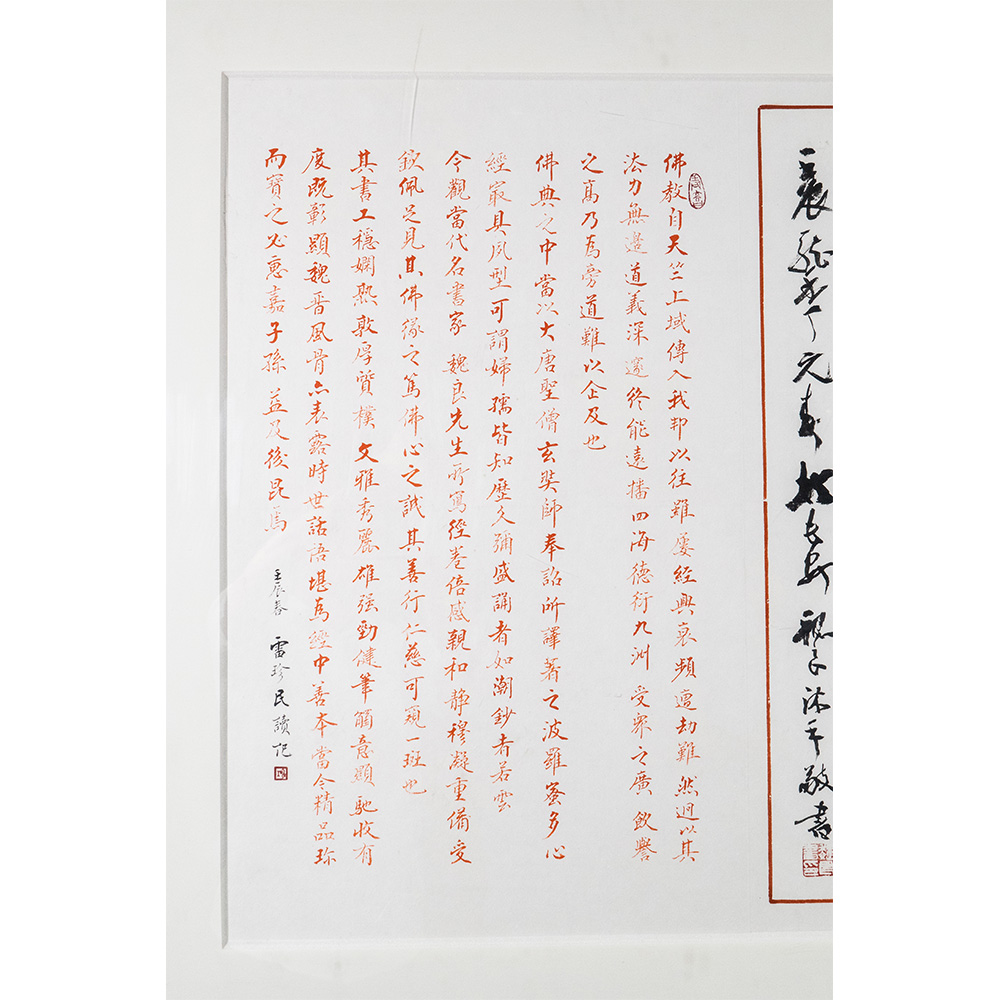 元春於長安 魏良沐手敬書
佛教自天竺上域傳入我邦以往雖屢經興衰頻遭劫難然迥以其
法力無邊道義深邃終能遠播四海德衍九洲受眾之廣飲譽
之高乃為旁道難以企及也
佛典之中當以大唐聖僧玄奘師奉詔所譯著之波羅蜜多心
經最具夙型可謂婦孺皆知歷久彌盛誦者如潮鈔者若雲
今觀當代名書家 魏良先生所寫經卷倍感親和静穆凝重備受
欽佩足見其佛緣之篤佛心之誠其善行仁慈可窺一斑也
其書工穩嫻熟敦厚質樸文雅秀麗雄强勁健筆簡意顯馳收有
度既彰顯魏晋風骨亦表露時世話語堪為經中善本當今精品珍
而寶之必惠嘉子孫益及後昆焉
壬辰春 雷珍民讀記